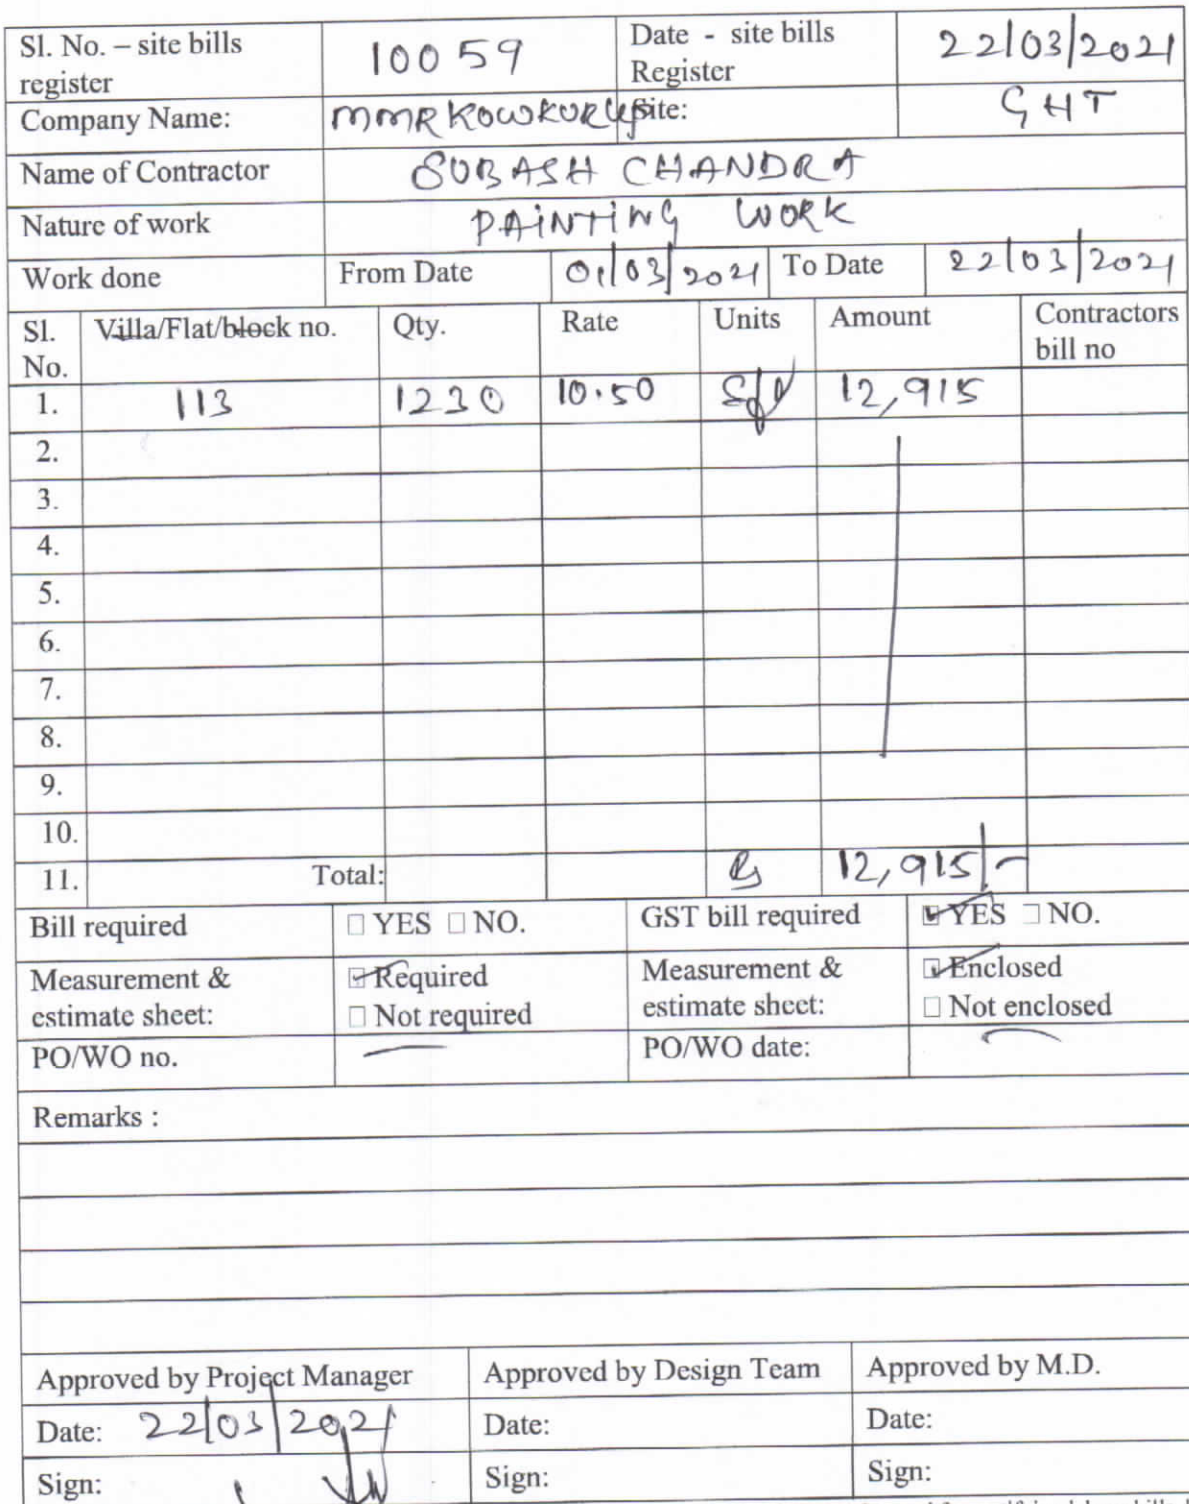 Sl. No. – site bills register 10059 Date - site bills Register 22/03/2021
Company Name: MMR KOWKUR LLP Site: GHT
Name of Contractor SUBASH CHANDRA
Nature of work PAINTING WORK
Work done From Date 01/03/2021 To Date 22/03/2021
Sl. No. Villa/Flat/block no. Qty. Rate Units Amount Contractors bill no
1. 113 1230 10.50 Sft 12,915
2.
3.
4.
5.
6.
7.
8.
9.
10.
11. Total: Rs 12,915/-
Bill required □ YES □ NO. GST bill required ☑ YES □ NO.
Measurement & estimate sheet: ☑ Required □ Not required Measurement & estimate sheet: ☑ Enclosed □ Not enclosed
PO/WO no. — PO/WO date: —
Remarks :
Approved by Project Manager Approved by Design Team Approved by M.D.
Date: 22/03/2021 Date: Date:
Sign: Sign: Sign: